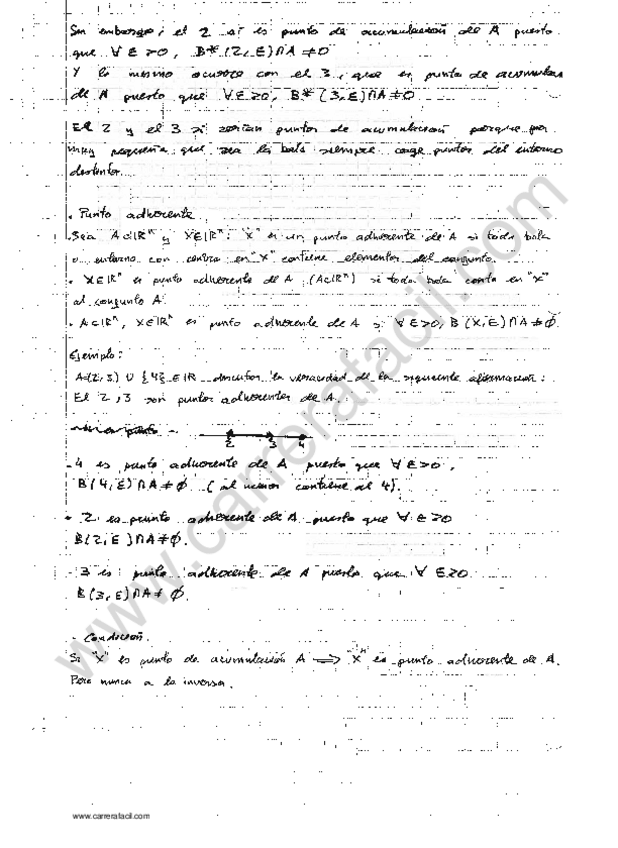 Sin embargo, el 2 si es punto de acumulación de A puesto
que ∀ E >0, B*(2,E)∩A ≠0
Y lo mismo ocurre con el 3, que es punto de acumulac
de A puesto que ∀E>0, B*(3,E)∩A≠0
El 2 y el 3 si serían puntos de acumulación porque por
muy pequeña que sea la bola siempre coge puntos del entorno
- Punto adherente
Sea A⊂ℝⁿ y X∈ℝⁿ. "X" es un punto adherente de A si toda bola
o entorno con centro en "x" contiene elementos del conjunto.
- X∈ℝⁿ es punto adherente de A (A⊂ℝⁿ) si toda bola en "x"
al conjunto A.
- A⊂ℝⁿ, X∈ℝⁿ es punto adherente de A si ∀E>0, B(X,E)∩A≠∅.
Ejemplo:
(2,3) ∪ {4} ∈ℝ la veracidad de la siguiente afirmación:
El 2, 3 son puntos adherentes de A.
2 3 4
- 4 es punto adherente de A puesto que ∀ E>0,
B(4,E)∩A≠∅ (al menos contiene al 4).
- 2 es punto adherente de A puesto que ∀ E>0
B(2,E)∩A≠∅.
- 3 es punto adherente de A puesto que ∀ E>0
B(3,E)∩A≠∅.
- Condición
Si "X" es punto de acumulación A ⟹ "X" es punto adherente de A.
Pero nunca a la inversa.
www.carrerafacil.com
www.carrerafacil.com